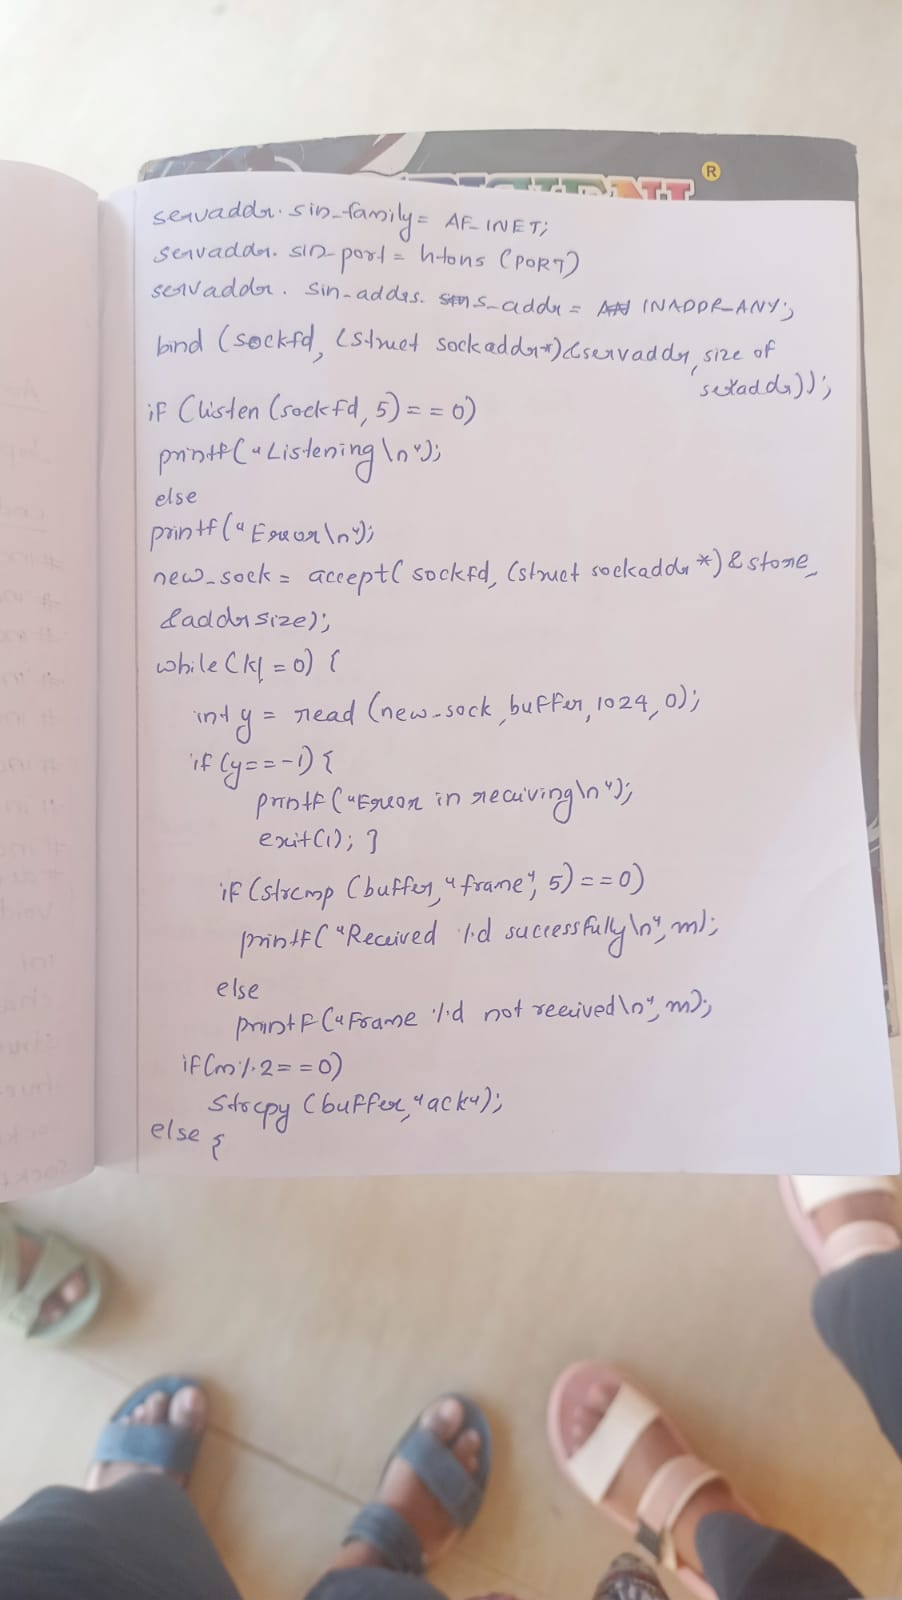 servaddr. sin_family = AF_INET;
servaddr. sin_port = htons (PORT)
servaddr. sin_addrs. s_addr = INADDR_ANY;
bind (sockfd, (struct sockaddr*)&servaddr, size of
seraddr));
if (listen (sockfd, 5) == 0)
printf("Listening \n");
else
printf("Error\n");
new_sock = accept( sockfd, (struct sockaddr *) & store,
&addrsize);
while (k! = 0) {
int y = read (new_sock, buffer, 1024, 0);
if (y == -1) {
printf ("Error in receiving\n");
exit(1); }
if (strcmp (buffer, "frame", 5) == 0)
printf( "Received %d successfully\n", m);
else
printf ("Frame %d not received\n", m);
if(m%2 == 0)
strcpy (buffer, "ack");
else {
R